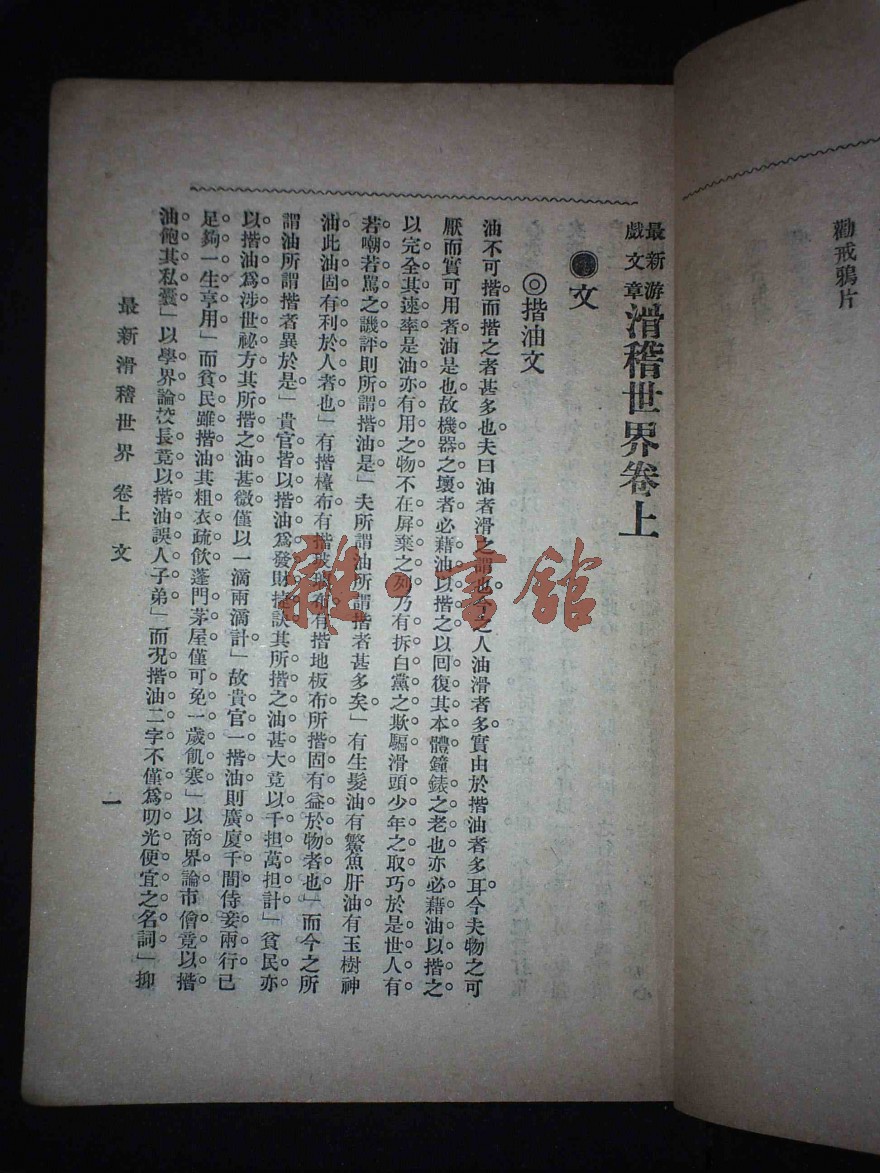 勸戒鴉片
最新游戲文章
滑稽世界卷上
文
◎揩油文
油不可揩而揩之者甚多也夫曰油者滑之謂也今之人油滑者多實由於揩油者多耳今夫物之可
厭而實可用者油是也故機器之壞者必藉油以揩之以回復其本體鐘錶之老也亦必藉油以揩之
以完全其速率是油亦有用之物不在屏棄之列乃有拆白黨之欺騙滑頭少年之取巧於是世人有
若嘲若罵之譏評則所謂揩油是」夫所謂油所謂揩者甚多矣」有生髮油有鱉魚肝油有玉樹神
油此油固有利於人者也」有揩檯布有揩玻璃布有揩地板布所揩固有益於物者也」而今之所
謂油所謂揩者異於是」貴官皆以揩油爲發財捷訣其所揩之油甚大竟以千担萬担計」貧民亦
以揩油爲涉世祕方其所揩之油甚微僅以一滴兩滴計」故貴官一揩油則廣廈千間侍妾兩行已
足夠一生享用」而貧民雖揩油其粗衣疏飲蓬門茅屋僅可免一歲飢寒」以商界論市儈竟以揩
油飽其私囊」以學界論校長竟以揩油誤人子弟」而況揩油二字不僅爲叨光便宜之名詞」抑
最新滑稽世界 卷上 文
一
雜·書館